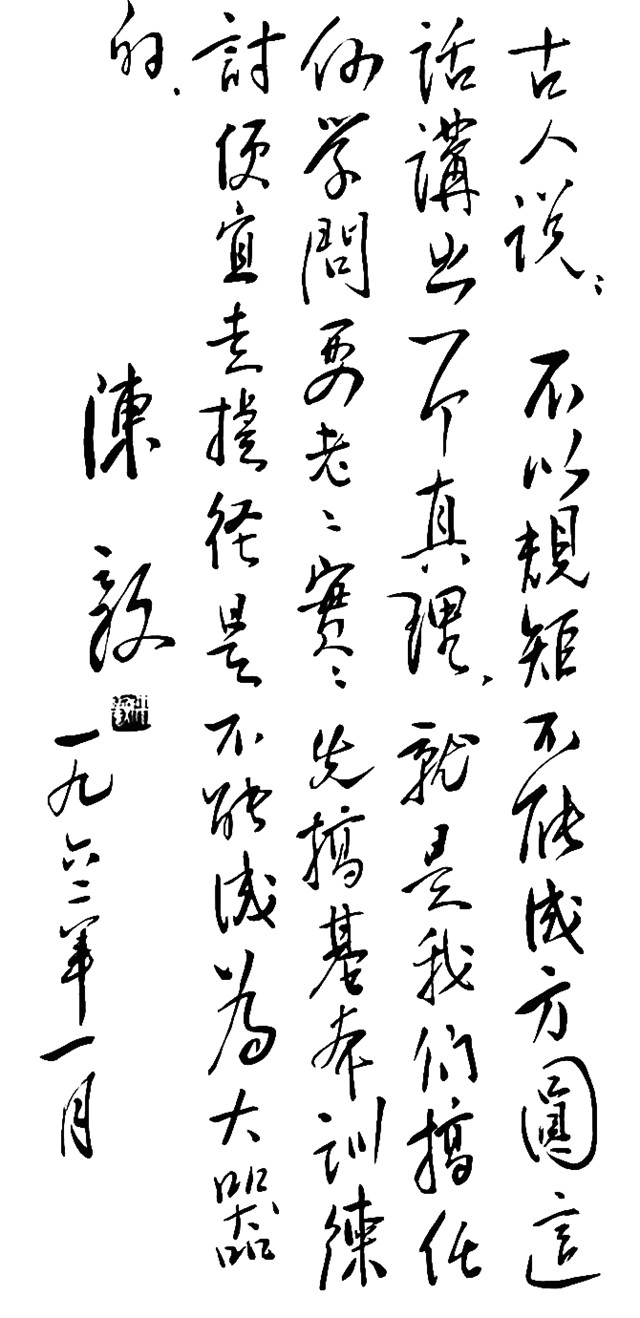 古人说：不以規矩不能成方圓這
話講出一个真理，就是我们搞任
何学問要老老實實先搞基本訓練
討便宜走捷径是不能成為大器
的．
陳毅
一九六二年一月